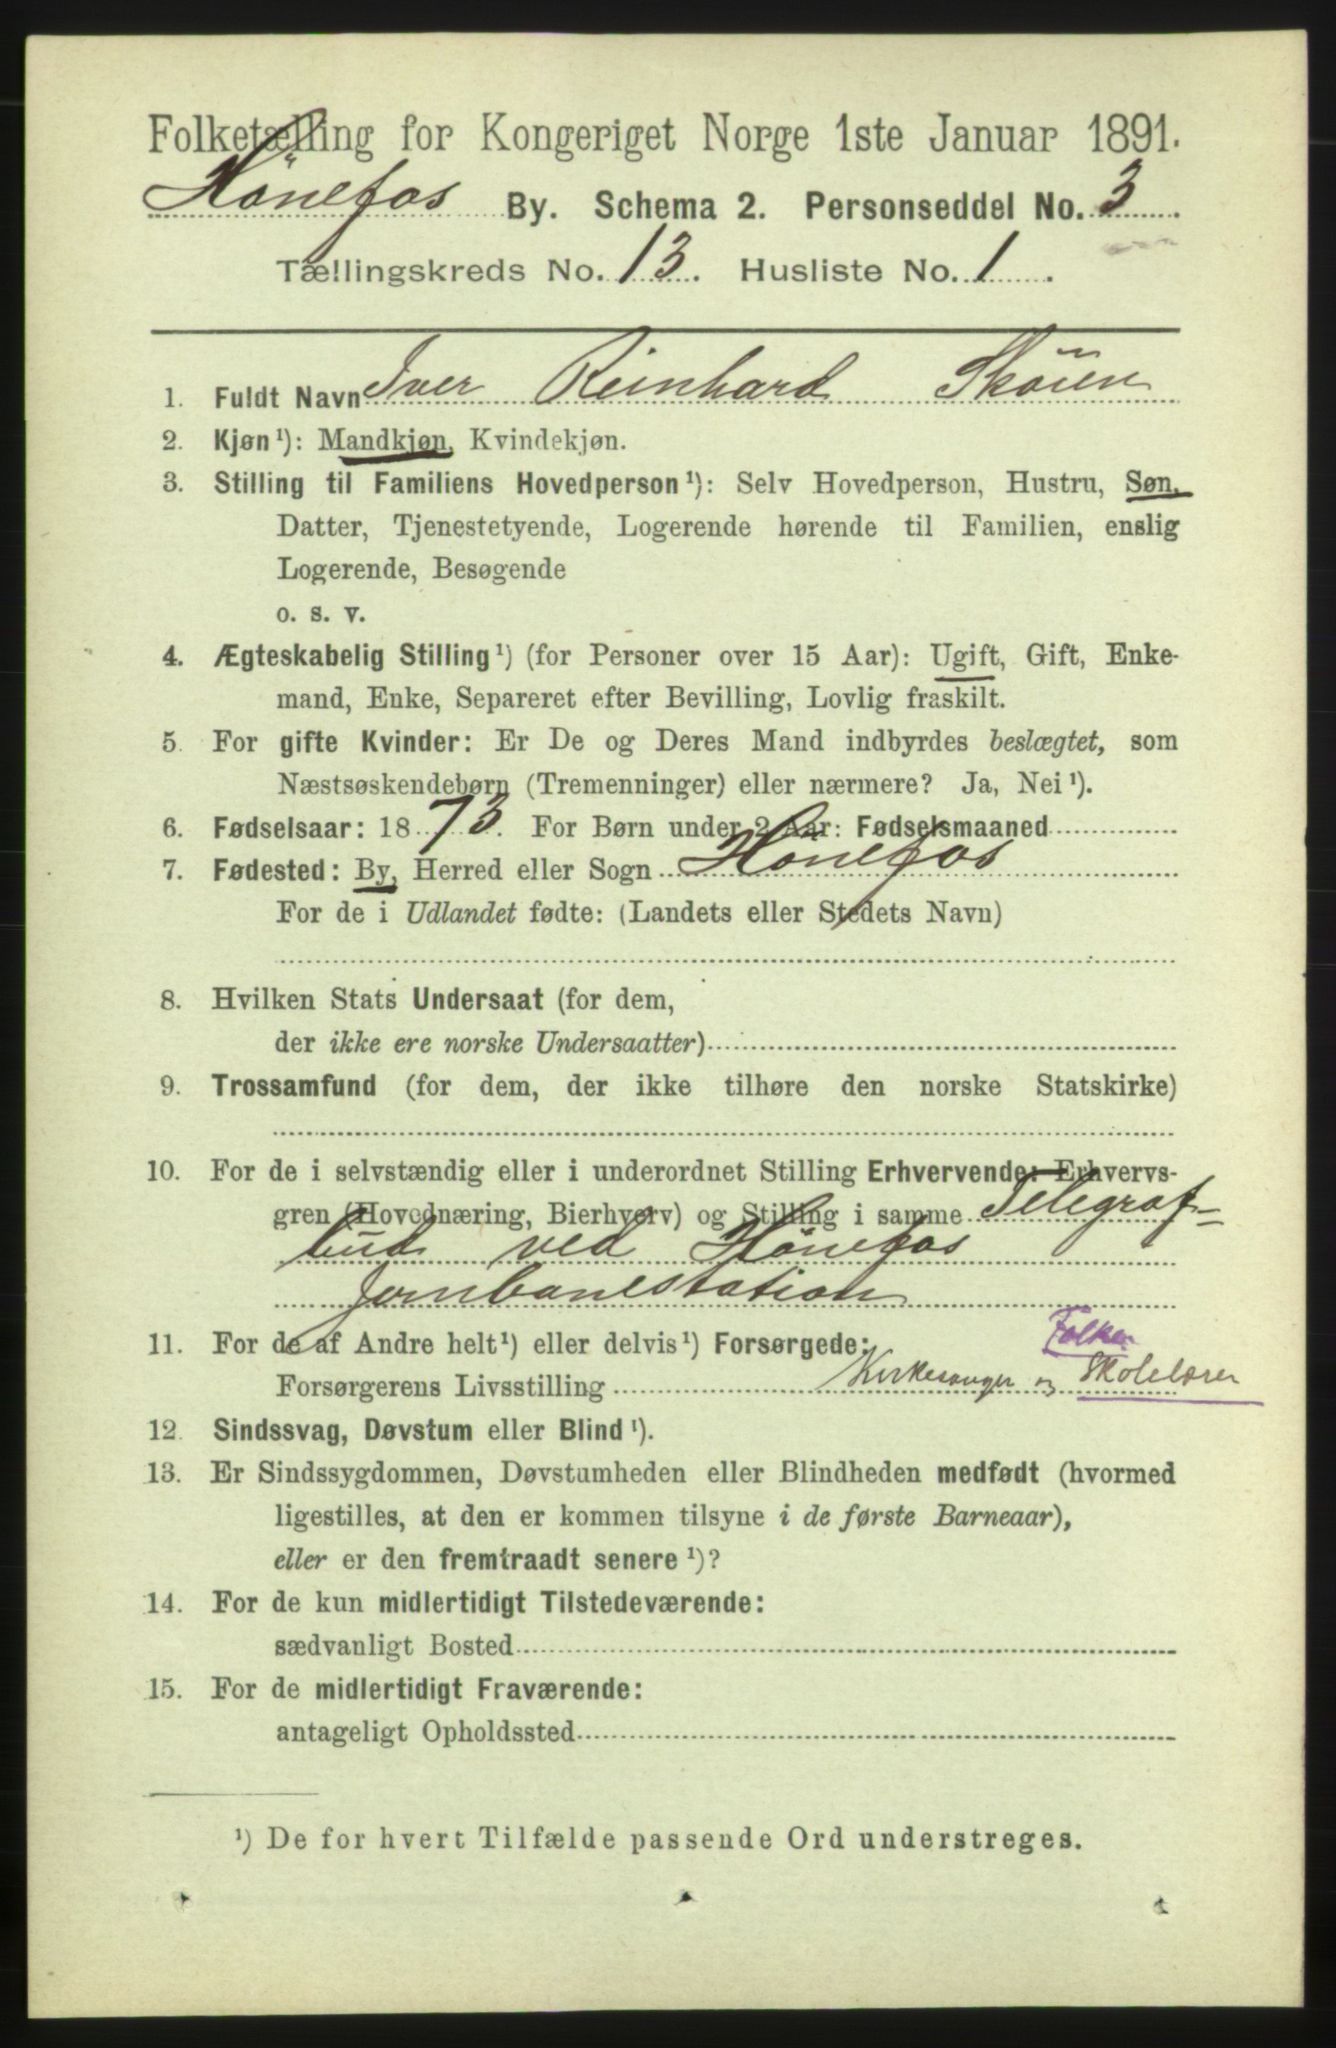 Folketælling for Kongeriget Norge 1ste Januar 1891.
Hönefos By. Schema 2. Personseddel No. 3
Tællingskreds No. 13. Husliste No. 1.
1. Fuldt Navn Iver Reinhard Sköien
2. Kjøn¹): Mandkjøn, Kvindekjøn.
3. Stilling til Familiens Hovedperson¹): Selv Hovedperson, Hustru, Søn,
Datter, Tjenestetyende, Logerende hørende til Familien, enslig
Logerende, Besøgende
o. s. v.
4. Ægteskabelig Stilling¹) (for Personer over 15 Aar): Ugift, Gift, Enke-
mand, Enke, Separeret efter Bevilling, Lovlig fraskilt.
5. For gifte Kvinder: Er De og Deres Mand indbyrdes beslægtet, som
Næstsøskendebørn (Tremenninger) eller nærmere? Ja, Nei¹).
6. Fødselsaar: 1873. For Børn under 2 Aar: Fødselsmaaned
7. Fødested: By, Herred eller Sogn Hönefos
For de i Udlandet fødte: (Landets eller Stedets Navn)
8. Hvilken Stats Undersaat (for dem,
der ikke ere norske Undersaatter)
9. Trossamfund (for dem, der ikke tilhøre den norske Statskirke)
10. For de i selvstændig eller i underordnet Stilling Erhvervende: Erhvervs-
gren (Hovednæring, Bierhverv) og Stilling i samme Telegraf-
bud ved Hönefos
Jernbanestation
11. For de af Andre helt¹) eller delvis¹) Forsørgede: Folke
Forsørgerens Livsstilling Kirkesanger og Skolelærer
12. Sindssvag, Døvstum eller Blind¹).
13. Er Sindssygdommen, Døvstumheden eller Blindheden medfødt (hvormed
ligestilles, at den er kommen tilsyne i de første Barneaar),
eller er den fremtraadt senere¹)?
14. For de kun midlertidigt Tilstedeværende:
sædvanligt Bosted
15. For de midlertidigt Fraværende:
antageligt Opholdssted
¹) De for hvert Tilfælde passende Ord understreges.